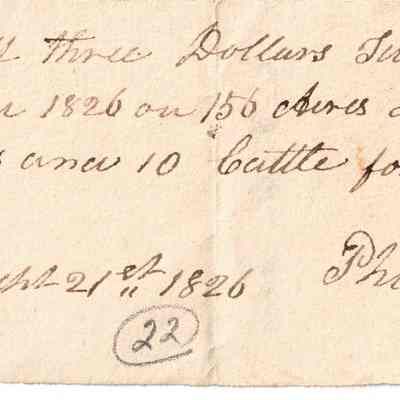 three Dollars
1826 on 156 Acres
and 10 Cattle for
Sept 21st 1826
22